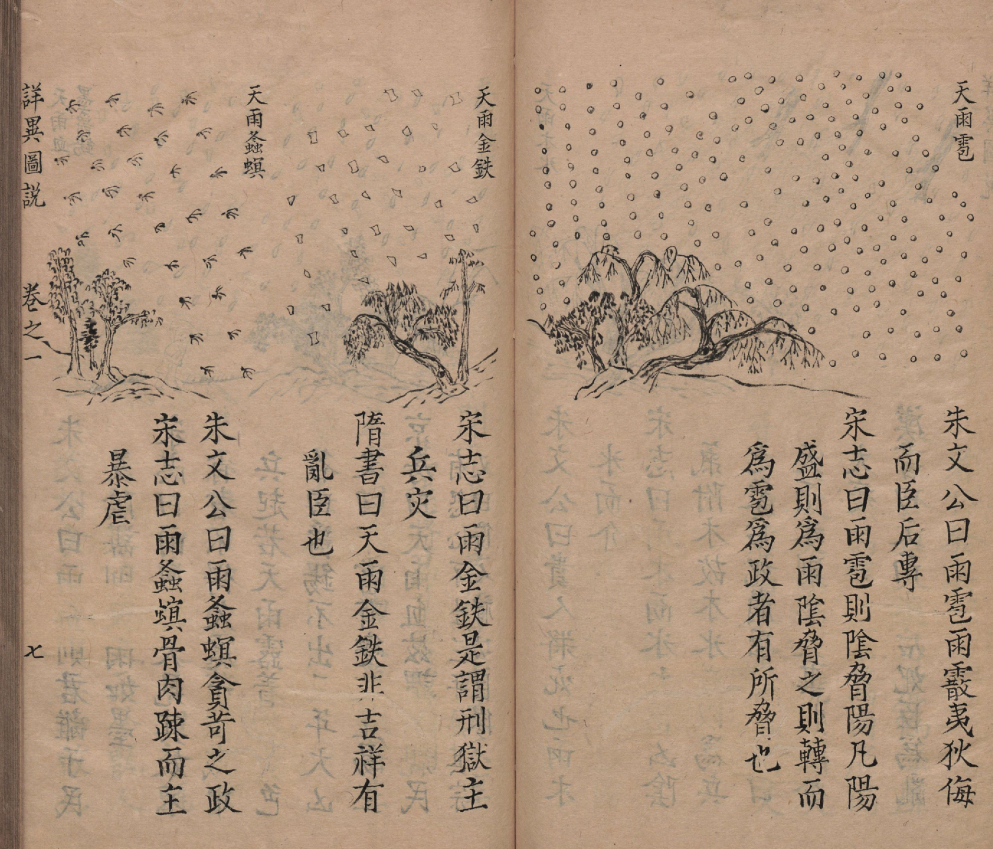 天雨雹
朱文公曰雨雹雨霰夷狄侮
而臣后專
宋志曰雨雹則陰脅陽凡陽
盛則爲雨陰脅之則轉而
爲雹爲政者有所脅也
天雨金鉄
宋志曰雨金鉄是謂刑獄主
兵灾
隋書曰天雨金鉄非吉祥有
亂臣也
天雨螽螟
朱文公曰雨螽螟貪苛之政
宋志曰雨螽螟骨肉踈而主
暴虐
詳異圖説 卷之一 七